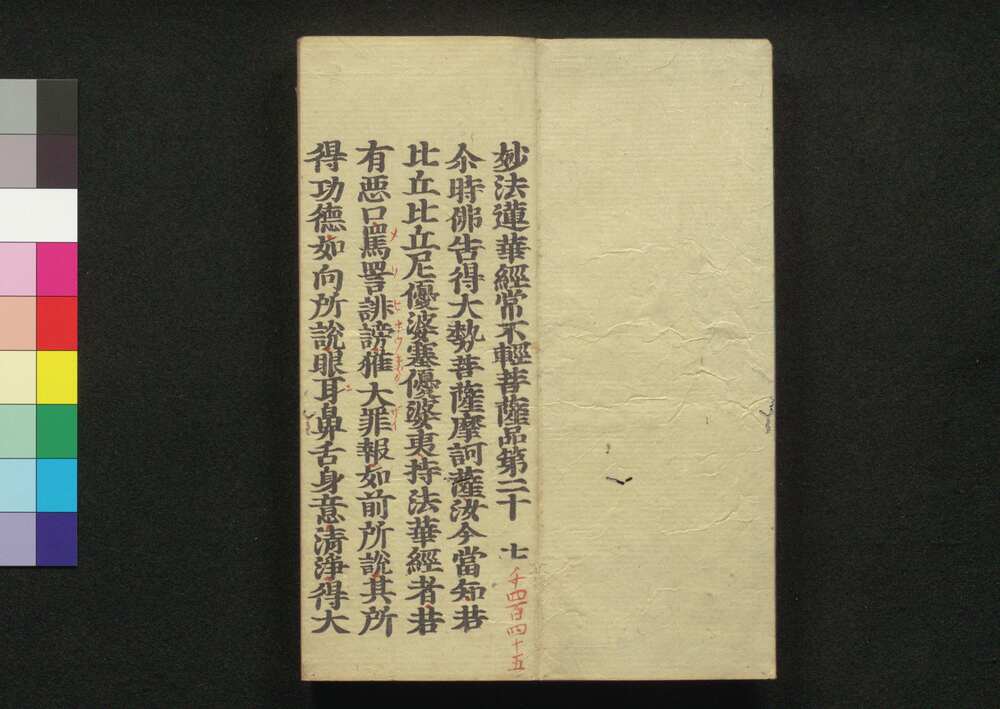 妙法蓮華經常不輕菩薩品第二十 七
千四百四十五
尒時佛告得大勢菩薩摩訶薩汝今當知若
比丘比丘尼優婆塞優婆夷持法華經者若
有悪口罵詈誹謗獲大罪報如前所說其所
メ リ ヒ ホウ
得功德如向所說眼耳鼻舌身意清淨得大